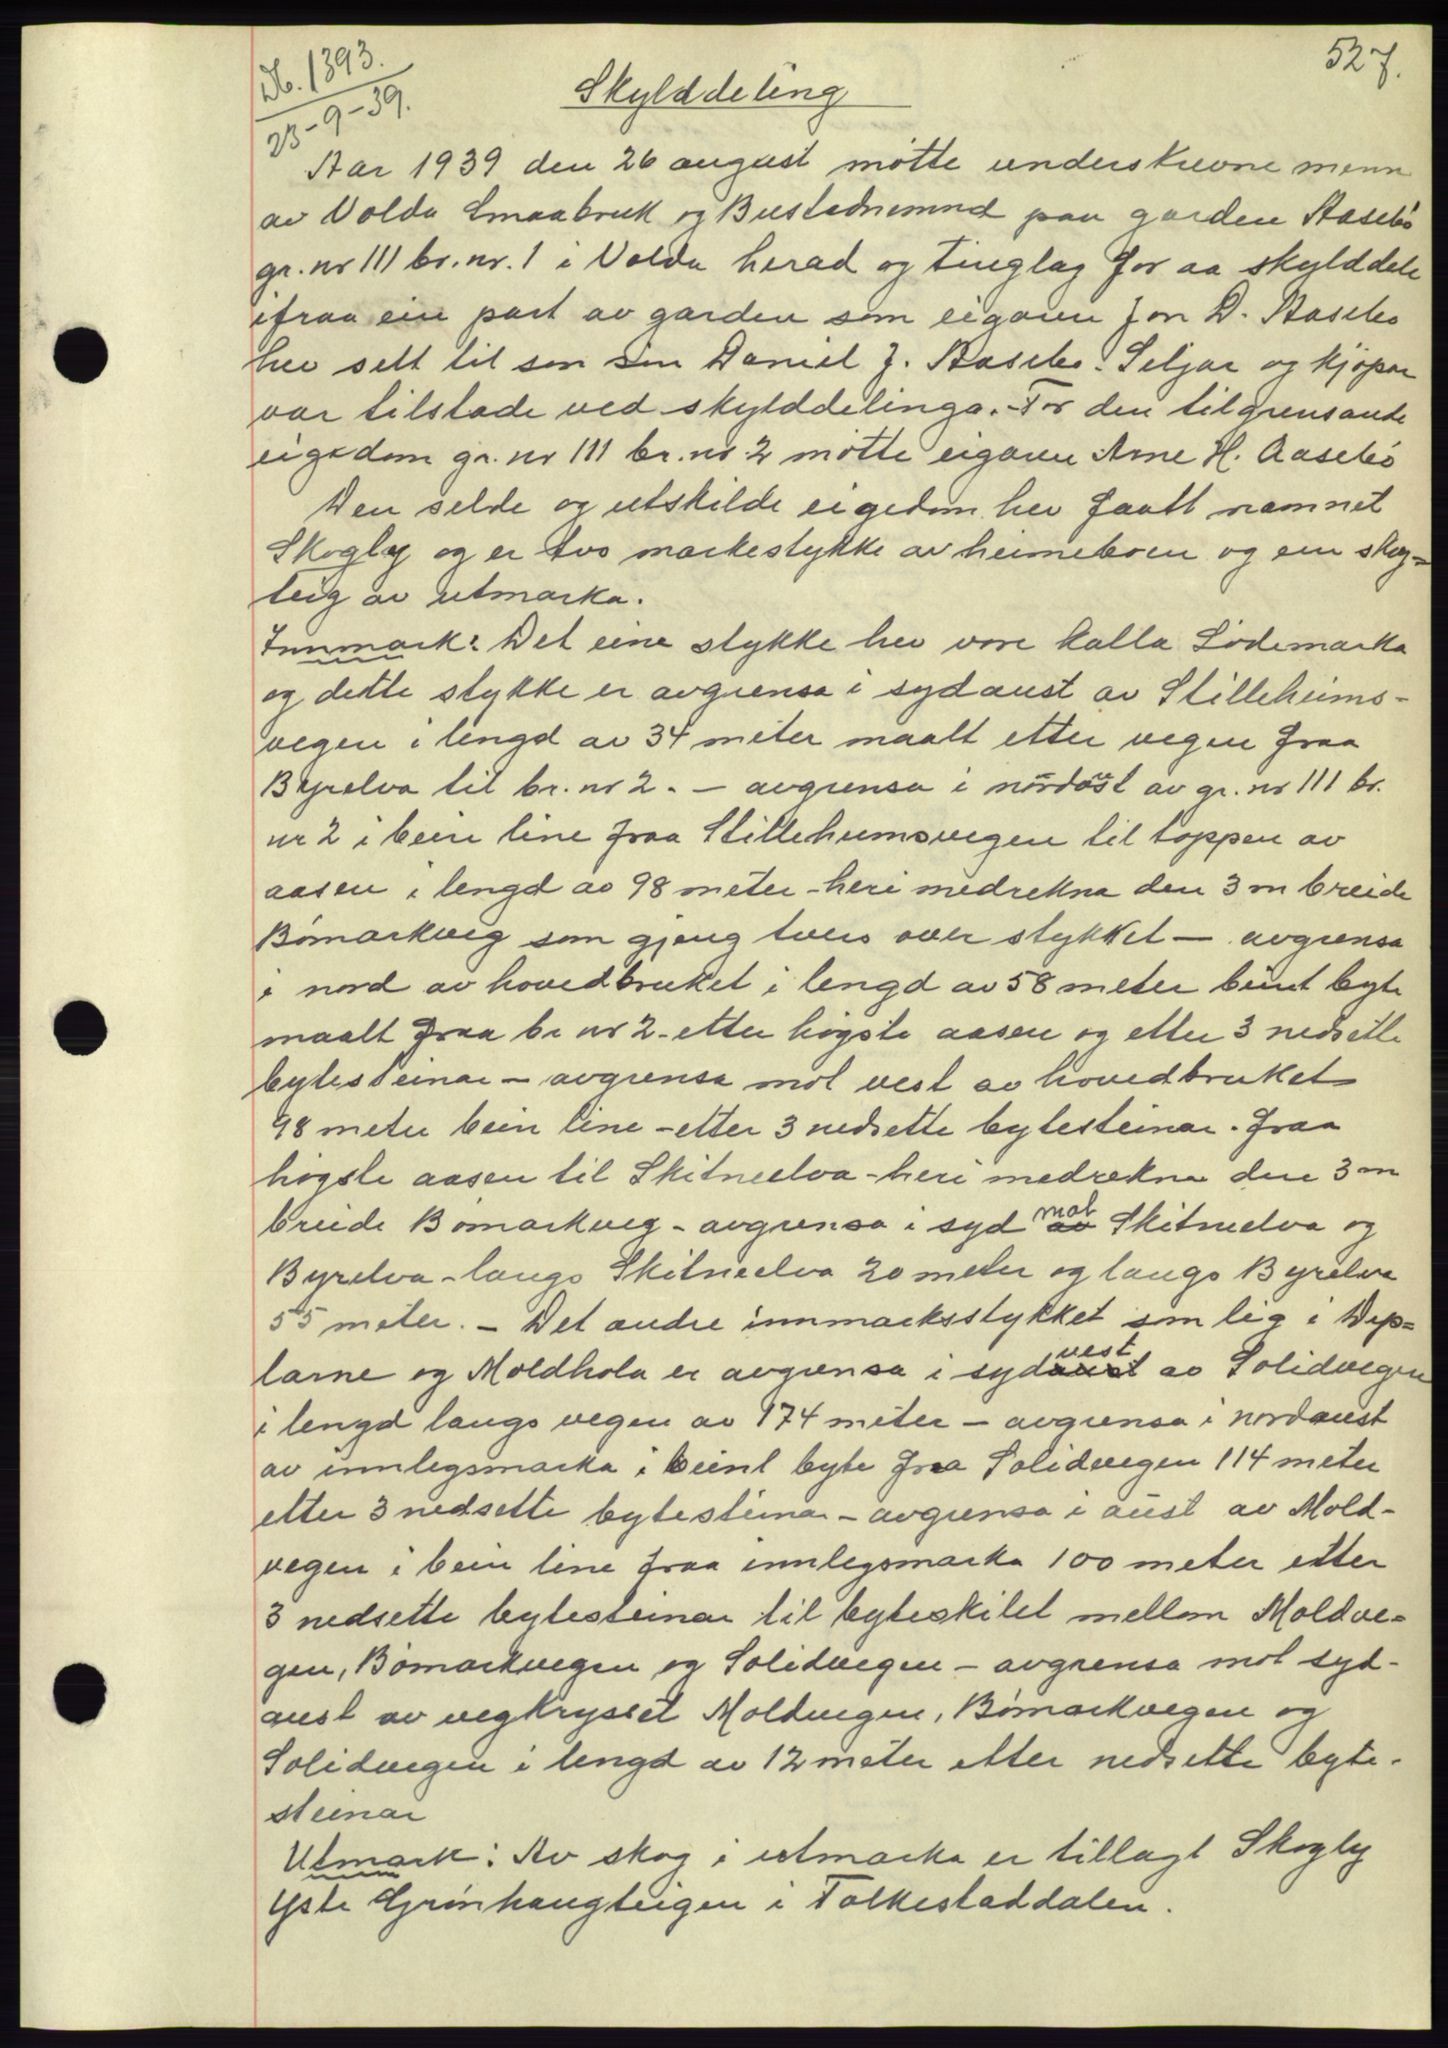 527.
Db. 1393.
23-9-39.
Skylddeling
Aar 1939 den 26 august møtte underskrevne menn
av Volda Smaabruk og Bustadnemnd paa garden Aasebø
gr. nr 111 br. nr. 1 i Volda herad og tinglag for aa skylddele
ifraa ein part av garden som eigaren Jon D. Aasebø
hev selt til son sin Daniel J. Aasebø. Seljar og kjøpar
var tilstade ved skylddelinga. - For den tilgrensande
eigedom gr. nr 111 br. nr 2 møtte eigaren Arne H. Aasebø
Den selde og utskilde eigedom hev faatt namnet
Skogly og er tvo markestykke av heimebøen og ein skog=
teig av utmarka.
Innmark: Det eine stykke hev vore kalla Lødemarka
og dette stykke er avgrensa i sydaust av Stilleheims-
vegen i lengd av 34 meter maalt etter vegen fraa
Byrelva til br. nr 2. - avgrensa i nordøst av gr. nr 111 br.
nr 2 i bein line fraa Stilleheimsvegen til toppen av
aasen i lengd av 98 meter - heri medrekna den 3 m breide
Bømarkveg som gjeng tvers over stykket - avgrensa
i nord av hovedbruket i lengd av 58 meter beint byte
maalt fraa br nr 2 - etter høgste aasen og etter 3 nedsette
bytesteinar - avgrensa mot vest av hovedbruket
98 meter bein line - etter 3 nedsette bytesteinar. fraa
høgste aasen til Skitneelva - heri medrekna den 3 m
breide Bømarkveg - avgrensa i syd av mot Skitneelva og
Byrelva - langs Skitneelva 20 meter og langs Byrelva
55 meter. - Det andre innmarksstykket som lig i Dep=
larne og Moldhola er avgrensa i sydaust vest av Solidvegen
i lengd langs vegen av 174 meter - avgrensa i nordaust
av innlegsmarka i beint byte fraa Solidvegen 114 meter
etter 3 nedsette bytesteinar - avgrensa i aust av Mold-
vegen i bein line fraa innlegsmarka 100 meter etter
3 nedsette bytesteinar til byteskilet mellom Moldve-
gen, Bømarkvegen og Solidvegen - avgrensa mot syd-
aust av vegkrysset Moldvegen, Bømarkvegen og
Solidvegen i lengd av 12 meter etter nedsette byte-
steinar
Utmark: Av skog i utmarka er tillagt Skogly
Yste Grønhaugteigen i Folkestaddalen.